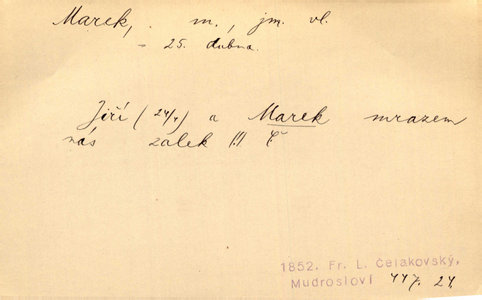 Marek, . m., jm. vl.
– 25. dubna.
Jiří (24/4) a Marek mrazem
nás zalek (!) Č
1852. Fr. L. Čelakovský,
Mudrosloví 447. 24.